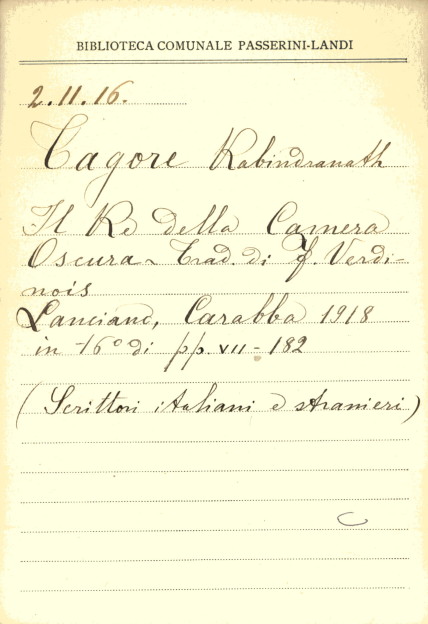 BIBLIOTECA COMUNALE PASSERINI-LANDI
2.11.16.
Tagore Rabindranath
Il Re della Camera
Oscura - Trad. di F. Verdi-
nois
Lanciano, Carabba 1918
in -16° di pp. VII - 182
(Scrittori italiani e stranieri)